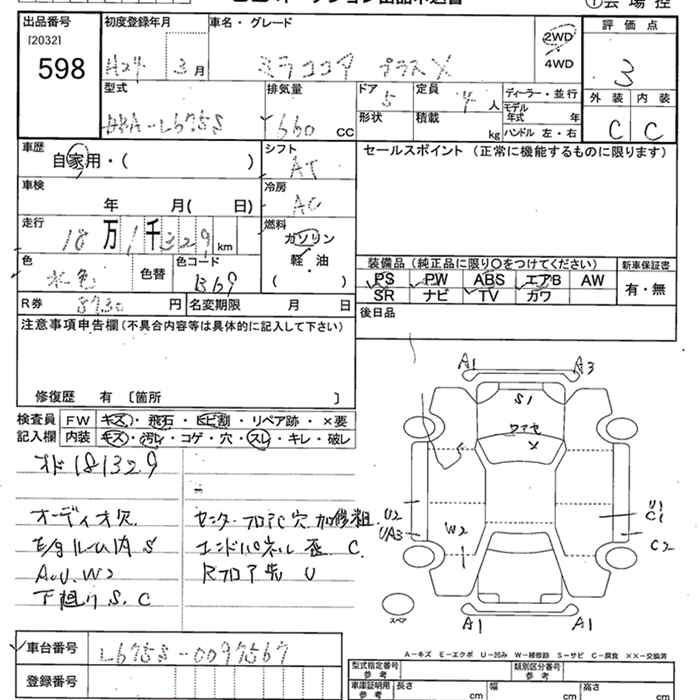 出品番号 初度登録年月 車名・グレード 2WD 評価点
[2032] 4WD
598 H24 3月 ミラココア プラスX 3
型式 排気量 ドア 定員 ディーラー・並行 外装 内装
5 4人 モデル年式 年
DBA-L675S 660 CC 形状 積載 kg ハンドル 左・右 C C
車歴 自家用・( ) シフト AT セールスポイント (正常に機能するものに限ります)
車検 年 月( 日) 冷房 AC
走行 18万1千329km 燃料 ガソリン
軽・油
( )
色 水色 色替 色コード B69
装備品(純正品に限り○をつけてください) 新車保証書
PS PW ABS エアB AW 有・無
SR ナビ TV カワ
R券 8730円 名変期限 月 日 後日品
注意事項申告欄(不具合内容等は具体的に記入して下さい)
修復歴 有 〔箇所 〕
検査員 FW キズ・飛石・ヒビ割・リペア跡・×要
記入欄 内装 キズ・汚レ・コゲ・穴・スレ・キレ・破レ
オド181329
オーディオ欠 センターフロアC穴加修粗
モタルーム内S エンドパネル歪 C
A.U.W2 Rフロア先 U
下廻りS.C
A1 A3
S1
ワアセ
×
U2 UA3 W2 U1 C1 C2
スペア A1 A1
A-キズ E-エクボ U-凹み W-補修跡 S-サビ C-腐食 XX-交換済
車台番号 L675S-0097567
登録番号
型式指定番号 参考 類別区分番号 参考
車庫証明用 参考 長さ cm 幅 cm 高さ cm